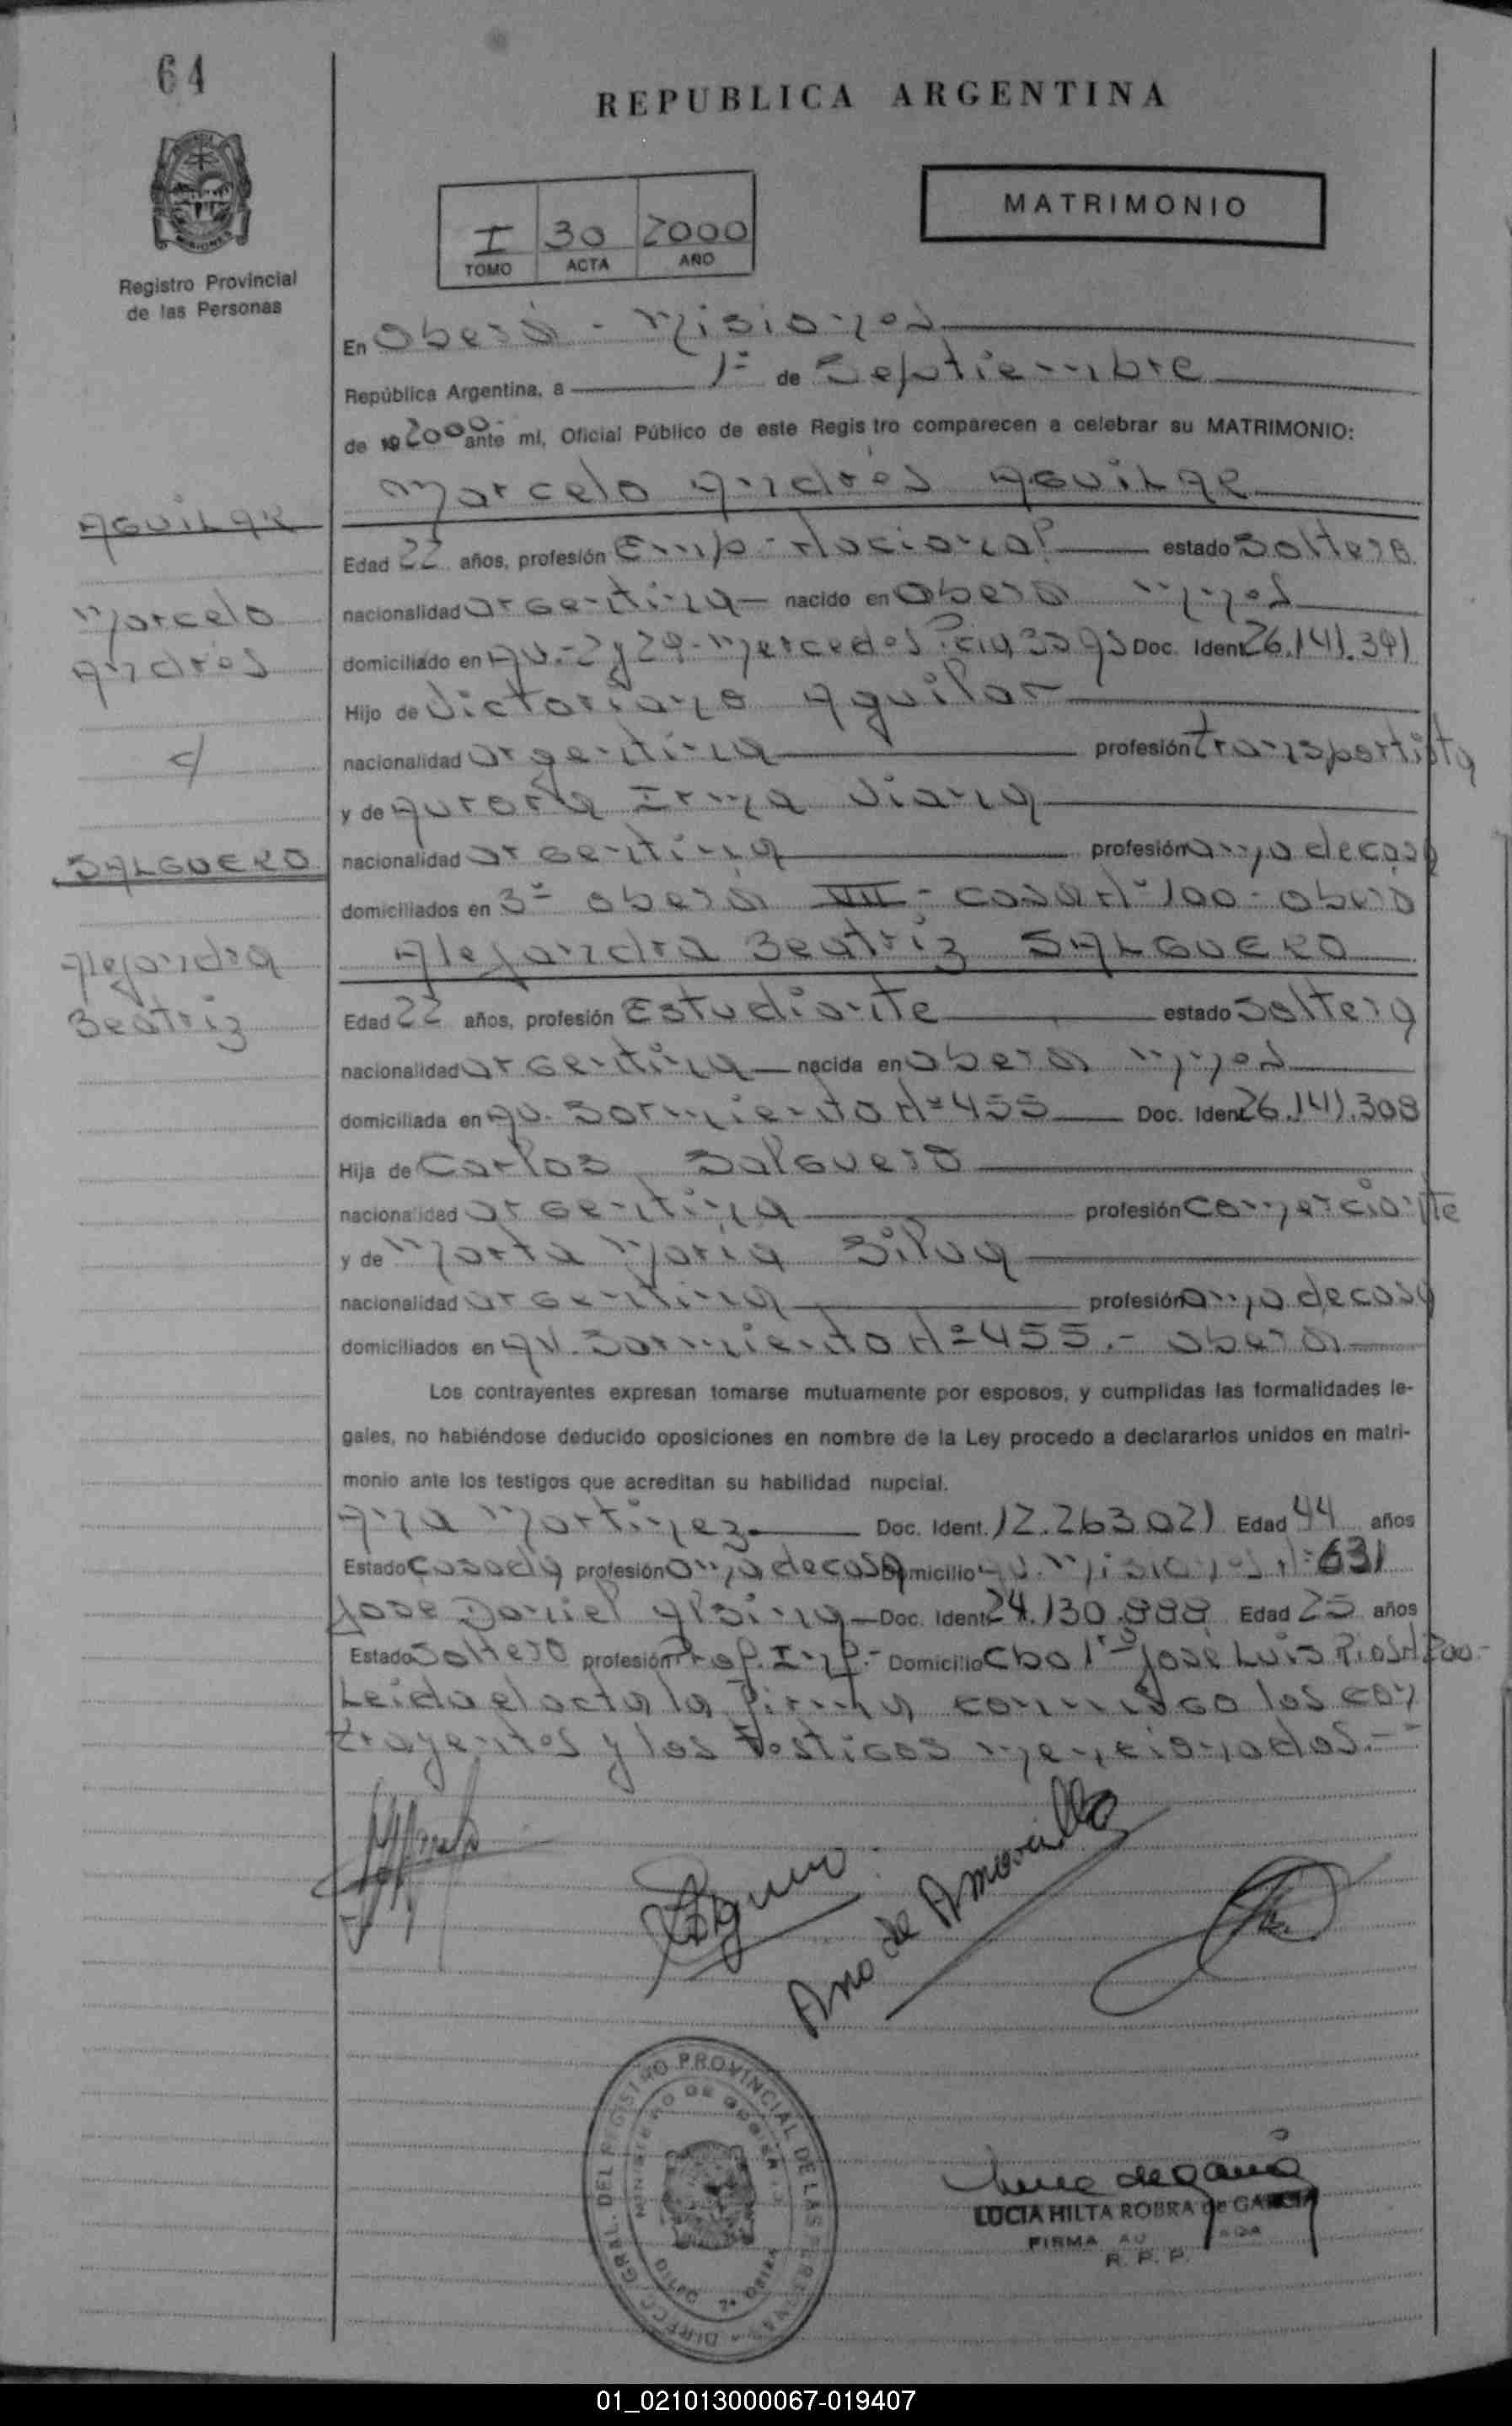 64
REPUBLICA ARGENTINA
MATRIMONIO
I 30 2000
TOMO ACTA AÑO
Registro Provincial
de las Personas
En Oberá - Misiones
República Argentina, a 1º de Septiembre
de 19 2000 ante mí, Oficial Público de este Registro comparecen a celebrar su MATRIMONIO:
Marcelo Andrés AGUILAR
AGUILAR
Marcelo
Andrés
c/
SALGUERO
Alejandra
Beatriz
Edad 22 años, profesión Emp. Nacional estado Soltero
nacionalidad argentina nacido en Oberá Mnes
domiciliado en Av. 2 y 29 - Mercedes Pcia Bs As Doc. Ident. 26.141.391
Hijo de Victoriano Aguilar
nacionalidad argentina profesión transportista
y de Aurora Irma Viana
nacionalidad argentina profesión ama de casa
domiciliados en 3º Oberá VIII - casa Nº 100 - Oberá
Alejandra Beatriz SALGUERO
Edad 22 años, profesión Estudiante estado Soltera
nacionalidad argentina nacida en Oberá Mnes
domiciliada en Av. Sarmiento Nº 455 Doc. Ident. 26.141.308
Hija de Carlos Salguero
nacionalidad argentina profesión comerciante
y de Marta María Silva
nacionalidad argentina profesión ama de casa
domiciliados en Av. Sarmiento Nº 455.- Oberá
Los contrayentes expresan tomarse mutuamente por esposos, y cumplidas las formalidades le-
gales, no habiéndose deducido oposiciones en nombre de la Ley procedo a declararlos unidos en matri-
monio ante los testigos que acreditan su habilidad nupcial.
Ana Martinez Doc. Ident. 12.263.021 Edad 44 años
Estado Casada profesión ama de casa Domicilio Av. Misiones Nº 631
Jose Daniel Alsina Doc. Ident. 24.130.888 Edad 25 años
Estado Soltero profesión Prof. Inf.- Domicilio Cbo 1º José Luis Rios N 200-
Leida el acta la firman conmigo los con
trayentes y los testigos mencionados.-
Ana de Amarilla
DIRECC. GRAL. DEL REGISTRO PROVINCIAL DE LAS PERSONAS
MINISTERIO DE GOBIERNO
LUCIA HILTA ROBRA de GARCIA
FIRMA
R. P. P.
01_021013000067-019407